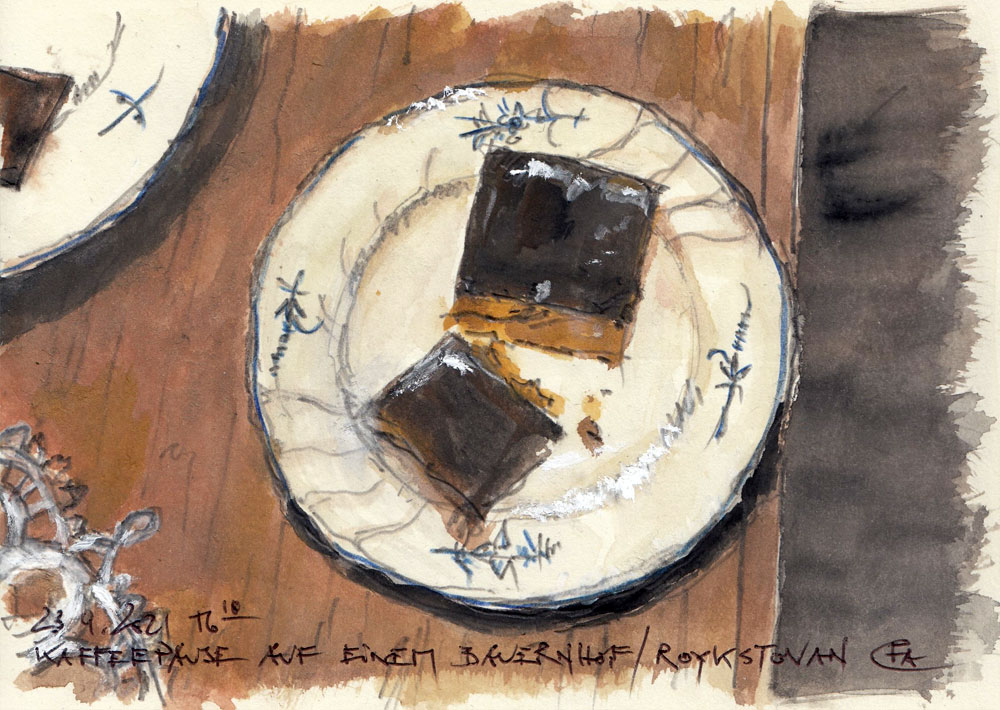 23.4.2021 16 10
KAFFEEPAUSE AUF EINEM BAUERNHOF/ROYKSTOVAN